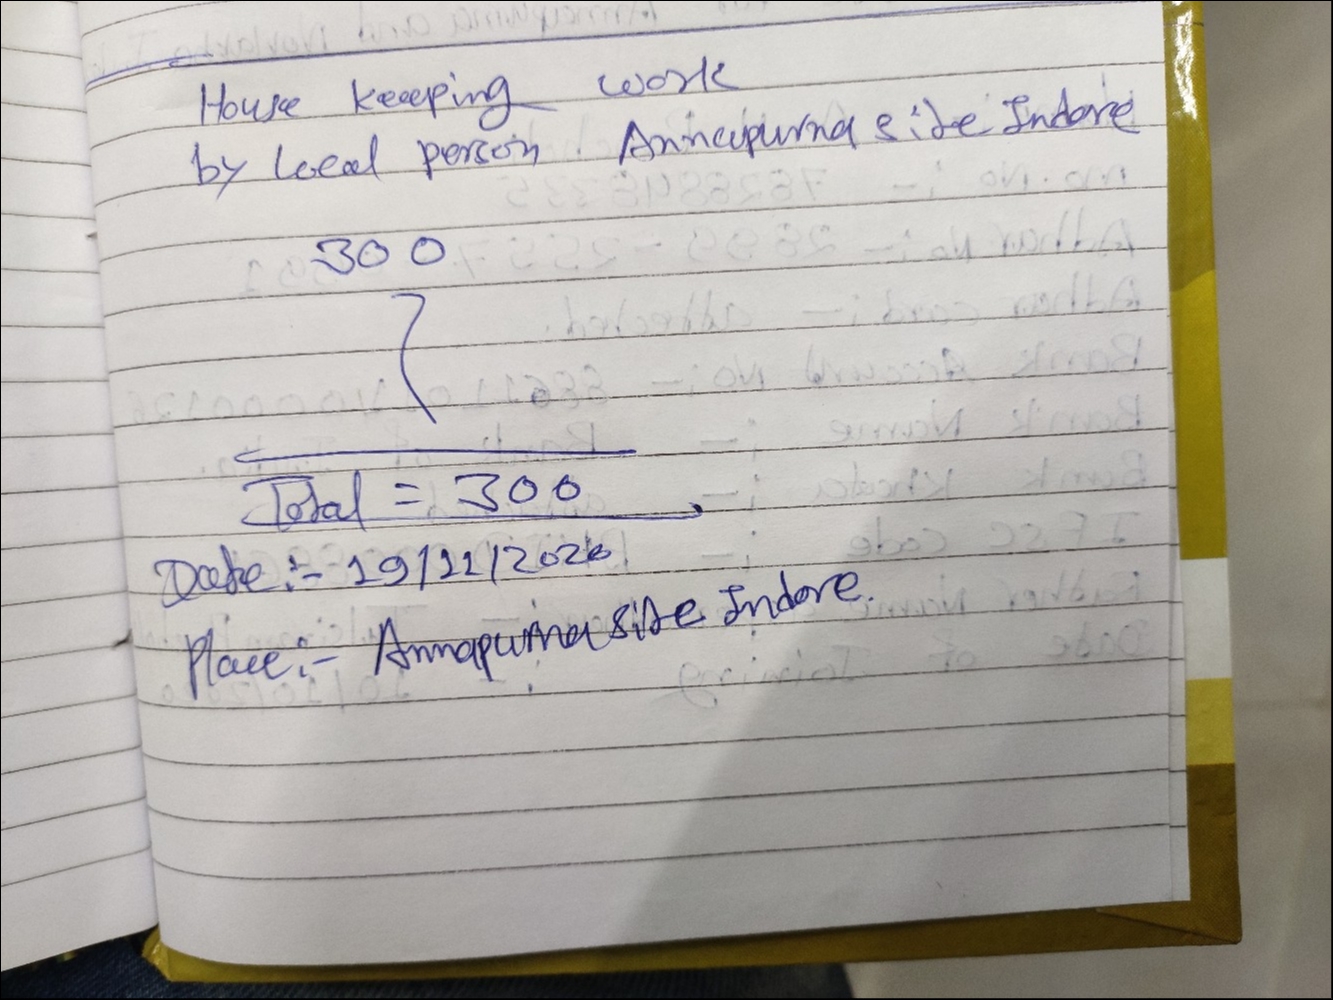 House keeeping work
by local person Annapurna site Indore
300
Total = 300
Date :- 19/11/2020
Place :- Annapurna site Indore.